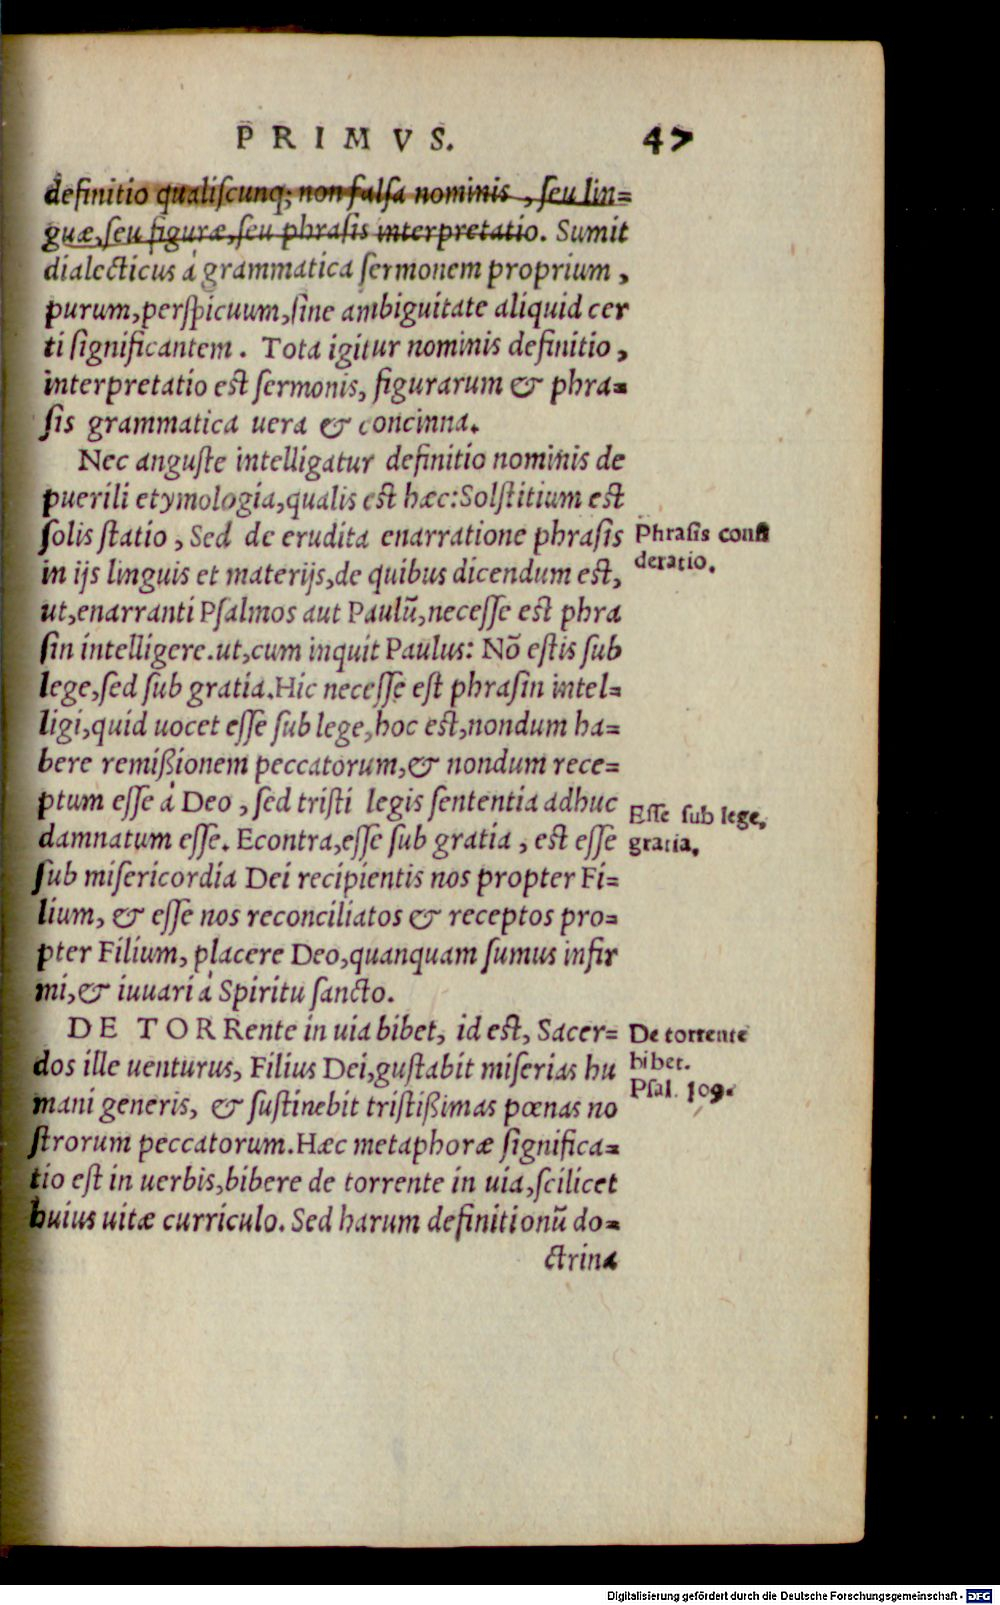 PRIMVS. 47
definitio qualiscunq; non falsa nominis, seu lin=
guæ, seu figuræ, seu phrasis interpretatio. Sumit
dialecticus à grammatica sermonem proprium,
purum, perspicuum, sine ambiguitate aliquid cer
ti significantem. Tota igitur nominis definitio,
interpretatio est sermonis, figurarum & phra=
sis grammatica uera & concinna.
Nec anguste intelligatur definitio nominis de
puerili etymologia, qualis est hæc: Solstitium est
solis statio, Sed de erudita enarratione phrasis
in ijs linguis et materijs, de quibus dicendum est,
ut, enarranti Psalmos aut Paulū, necesse est phra
sin intelligere. ut, cum inquit Paulus: Nō estis sub
lege, sed sub gratia. Hic necesse est phrasin intel=
ligi, quid uocet esse sub lege, hoc est, nondum ha=
bere remißionem peccatorum, & nondum rece=
ptum esse à Deo, sed tristi legis sententia adhuc
damnatum esse. Econtra, esse sub gratia, est esse
sub misericordia Dei recipientis nos propter Fi=
lium, & esse nos reconciliatos & receptos pro=
pter Filium, placere Deo, quanquam sumus infir
mi, & iuuari à Spiritu sancto.
DE TORRente in uia bibet, id est, Sacer=
dos ille uenturus, Filius Dei, gustabit miserias hu
mani generis, & sustinebit tristißimas pœnas no
strorum peccatorum. Hæc metaphoræ significa=
tio est in uerbis, bibere de torrente in uia, scilicet
huius uitæ curriculo. Sed harum definitionū do=
ctrina
Phrasis consi
deratio.
Esse sub lege,
gratia.
De torrente
bibet.
Psal. 109.
Digitalisierung gefördert durch die Deutsche Forschungsgemeinschaft - DFG